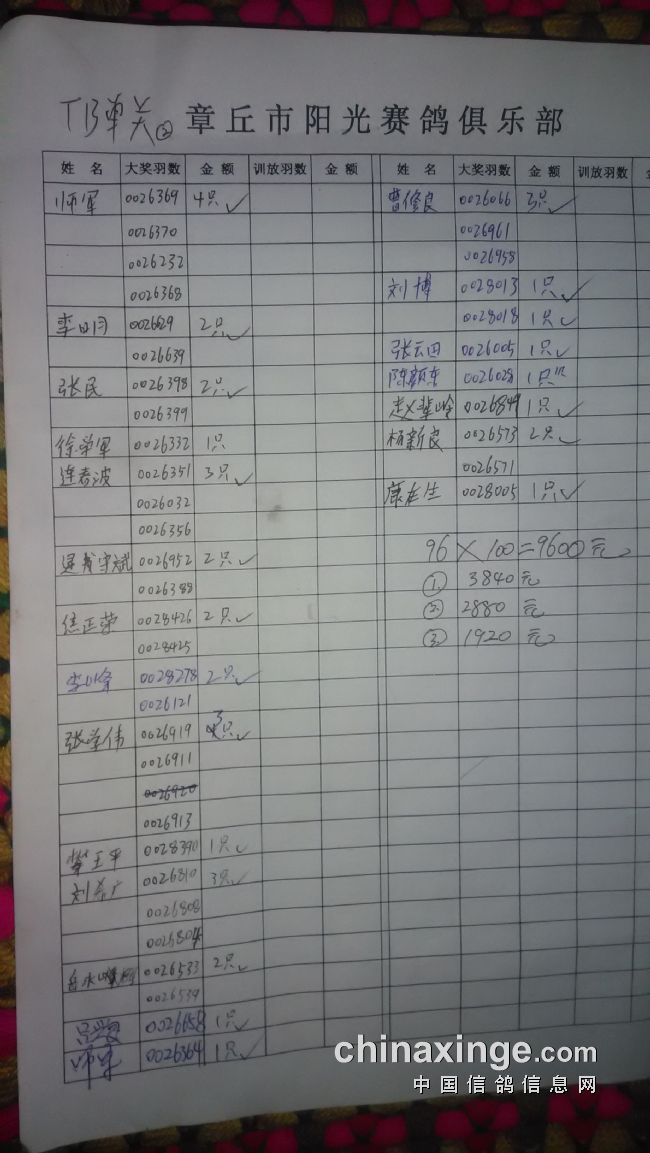 TB单关② 章丘市阳光赛鸽俱乐部
姓 名 大奖羽数 金 额 训放羽数 金 额 姓 名 大奖羽数 金 额 训放羽数 金
师军 0026369 4只✓
0026370
0026232
0026368
李明 0026629 2只✓
0026639
张民 0026398 2只✓
0026399
徐荣军 0026332 1只
连春波 0026351 3只✓
0026032
0026356
斌 0026952 2只✓
0026388
正荣 0028426 2只✓
0028425
李 0028278 2只✓
0026121
张学伟 0026919 3只✓
0026911
0026920
0026913
王平 0028390 1只✓
刘 0026810 3只✓
0026808
0026804
0026533 2只✓
0026539
吕 0026658 1只✓
师军 0026364 1只✓
曹修良 0026066 3只✓
0026961
0026958
刘博 0028013 1只✓
0028018 1只✓
张云田 0026005 1只✓
陈 0026028 1只
赵 0026849 1只✓
杨新良 0026573 2只✓
0026571
康 生 0028005 1只✓
96×100=9600元
① 3840元
② 2880元
③ 1920元
chinaxinge.com
中国信鸽信息网